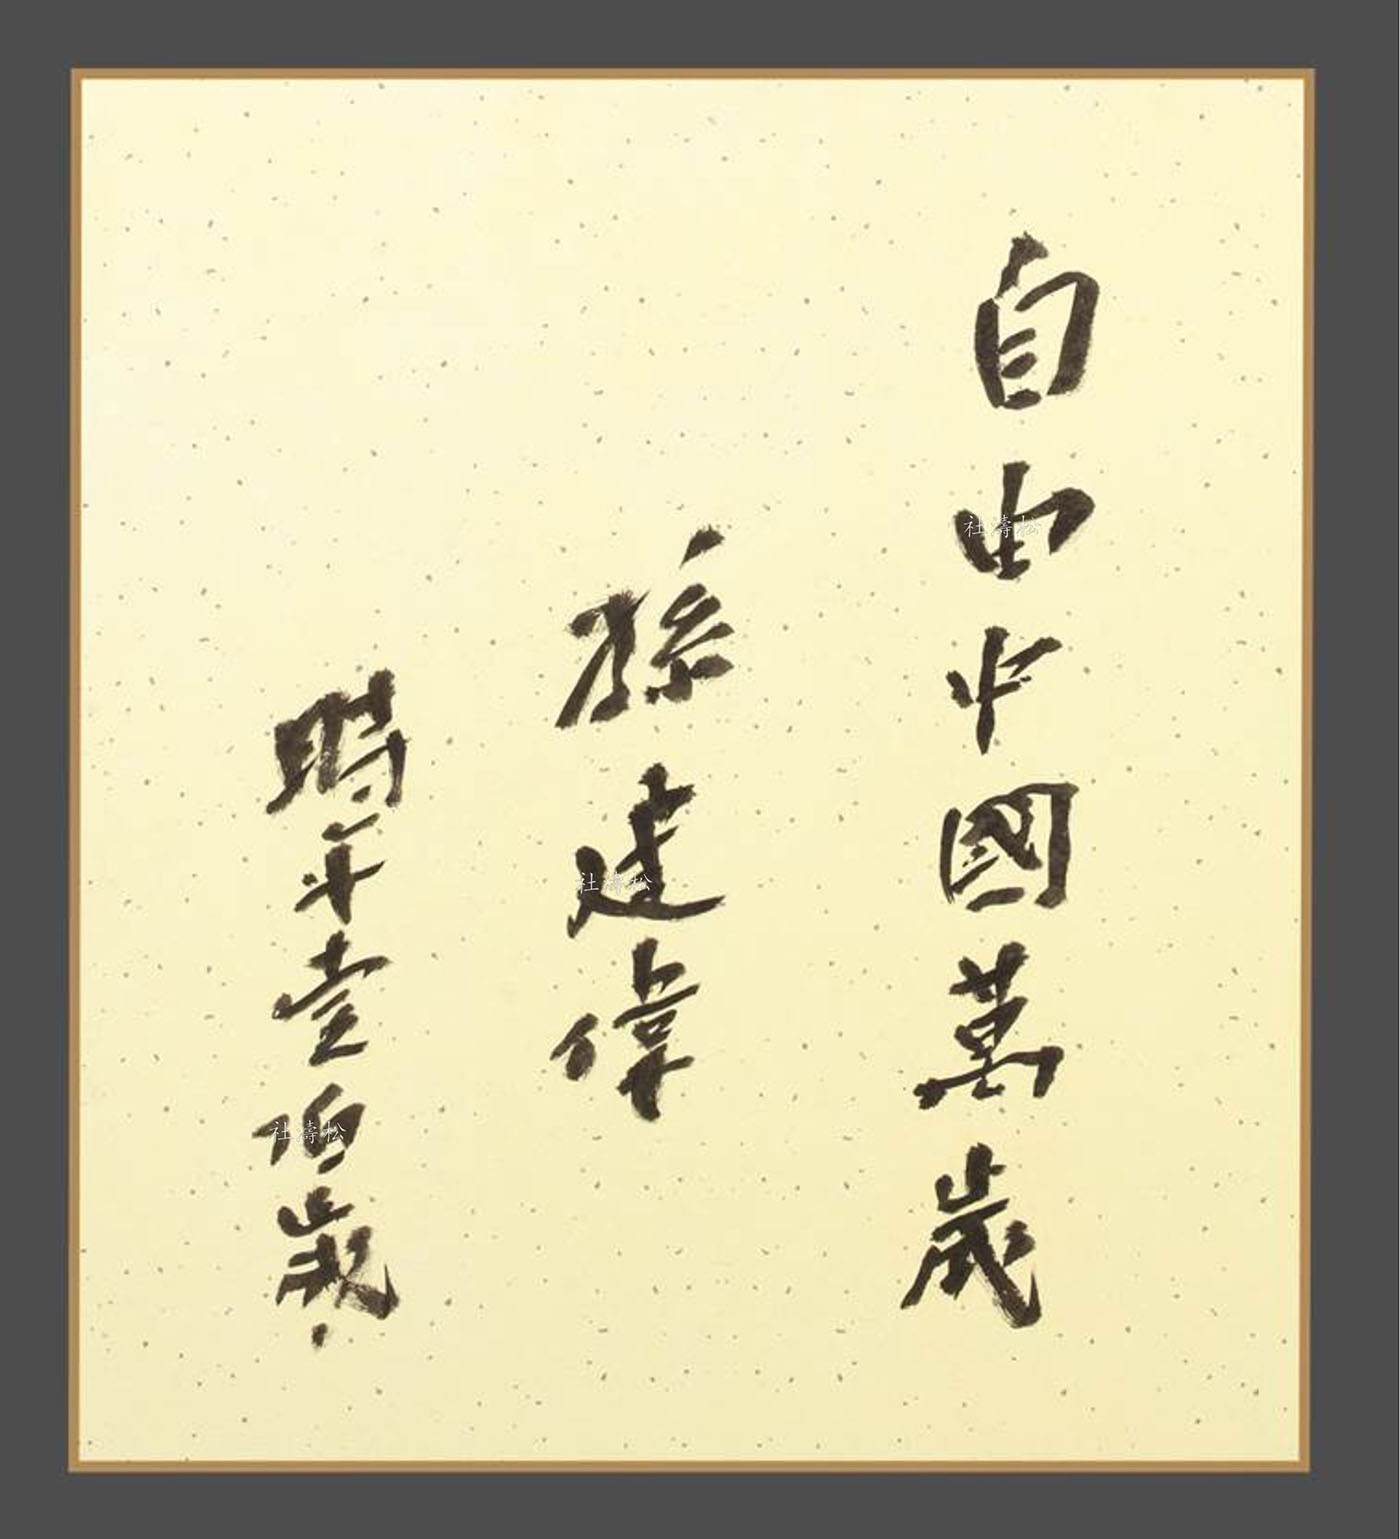 自由中國萬歲
孫建偉
時年壹佰歲
松濤社
松濤社
松濤社